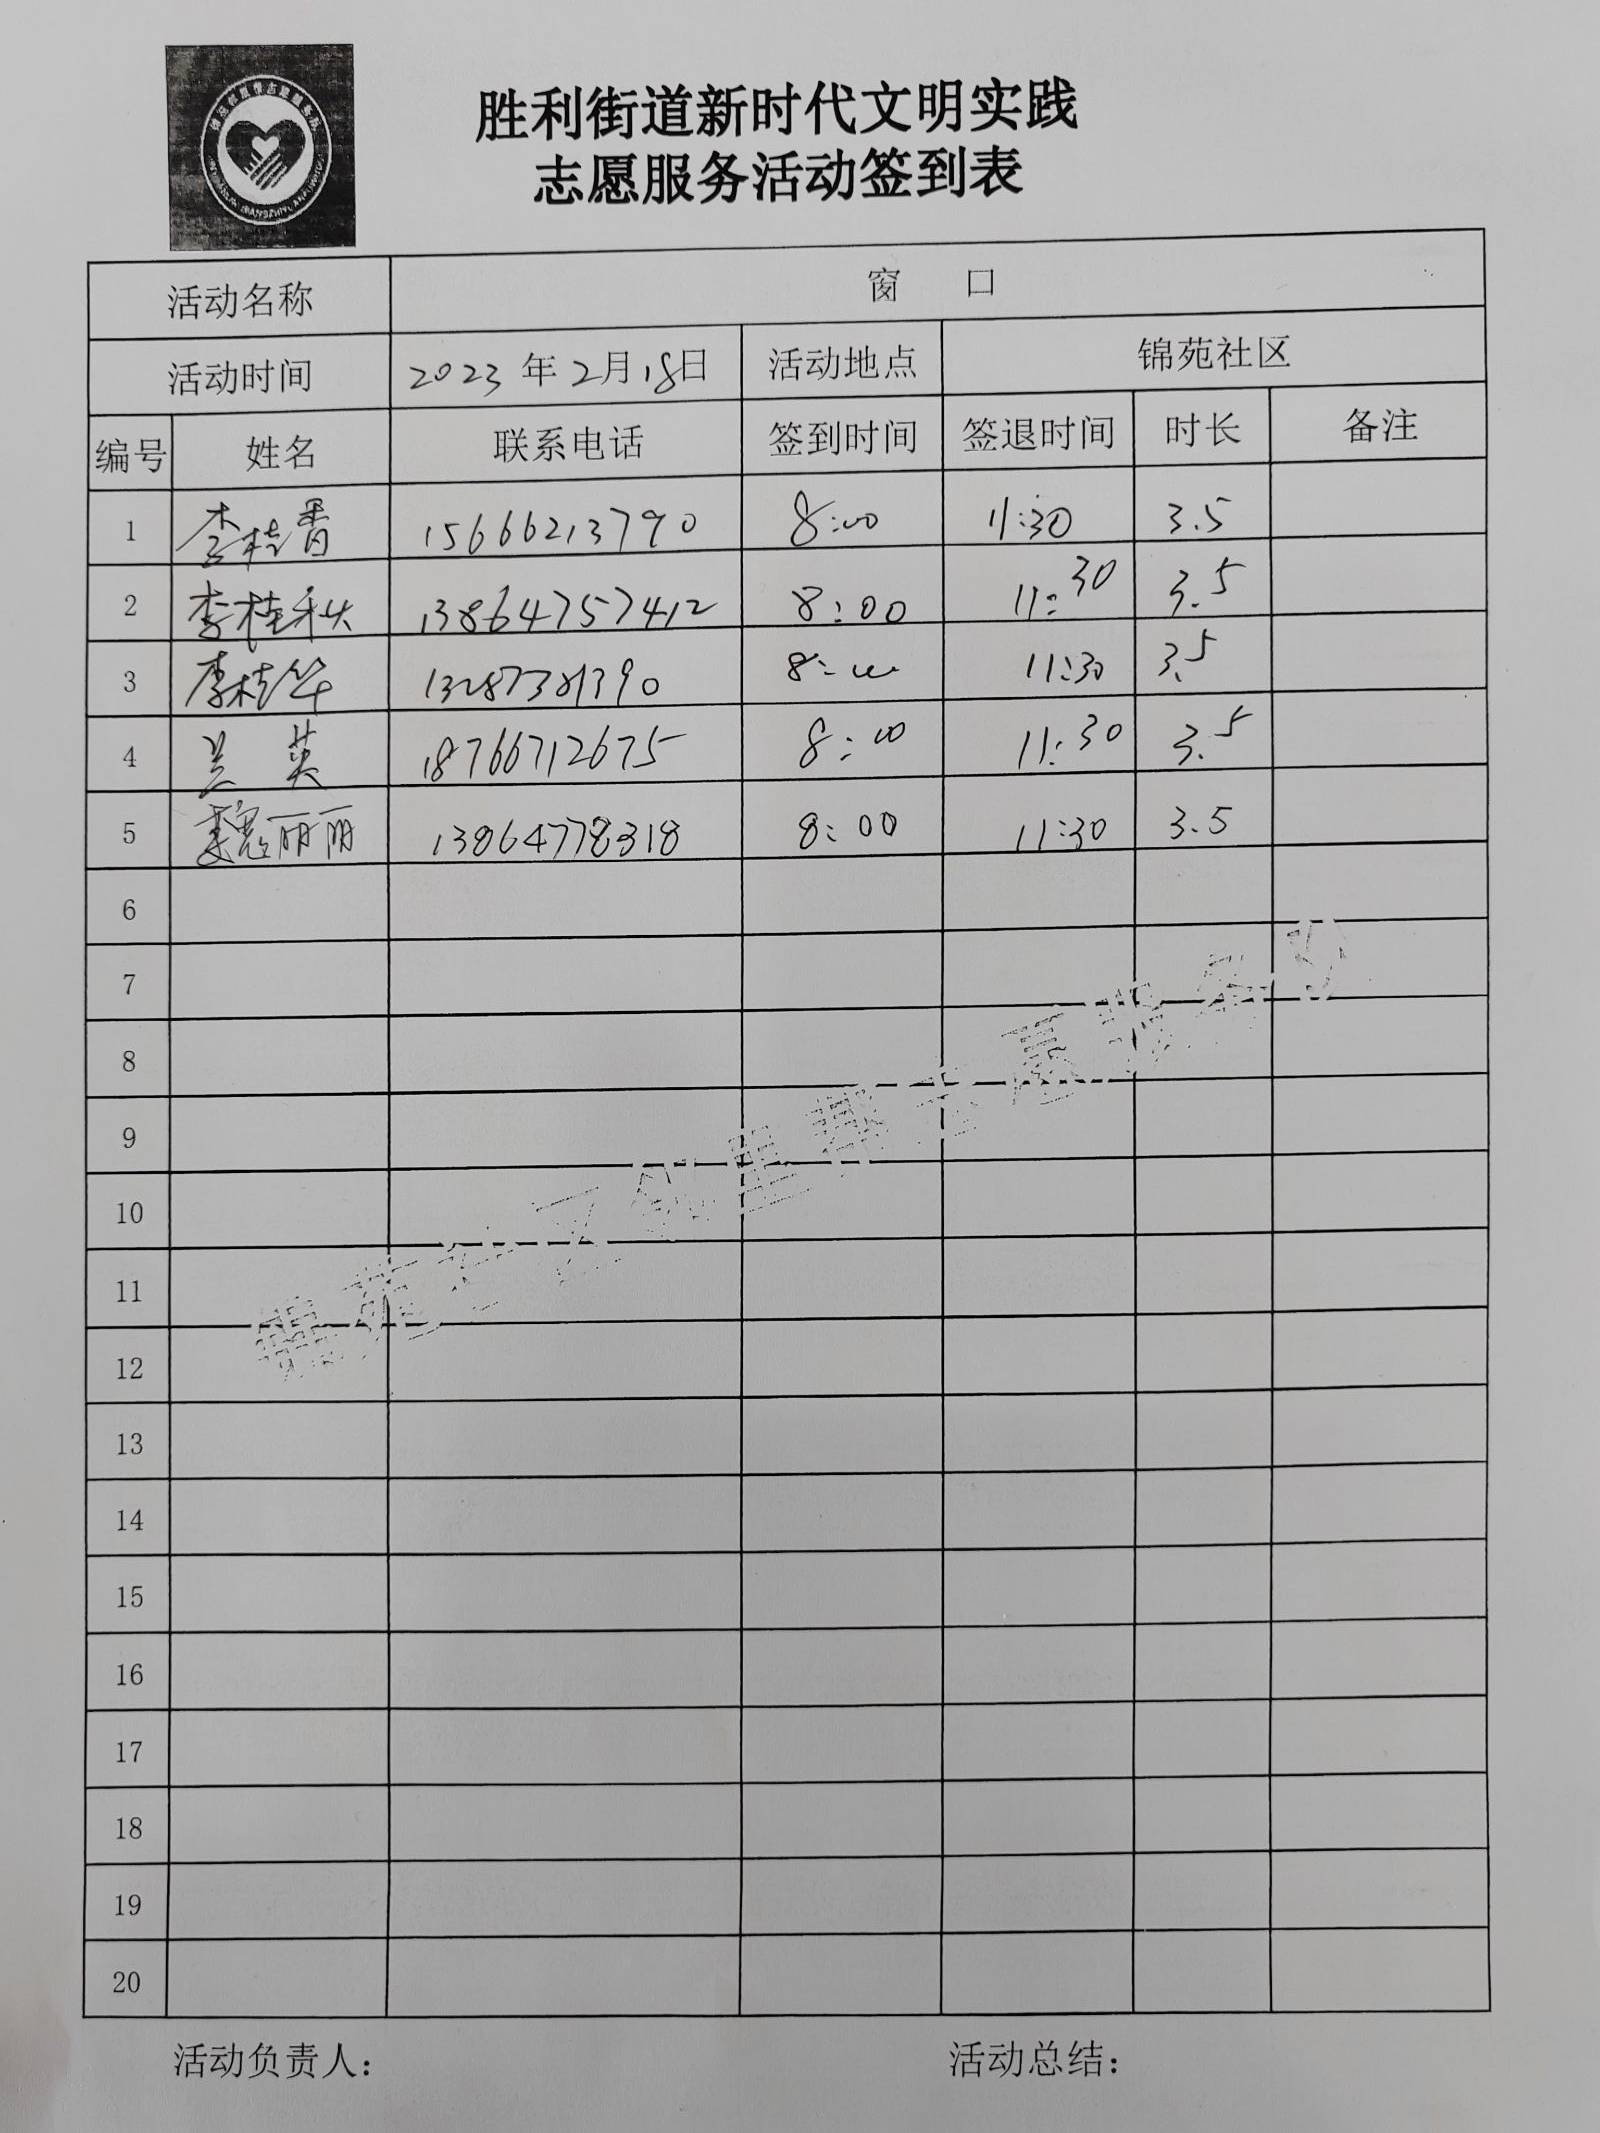 胜利街道新时代文明实践
志愿服务活动签到表
活动名称 窗 口
活动时间 2023 年 2 月 18 日 活动地点 锦苑社区
编号 姓名 联系电话 签到时间 签退时间 时长 备注
1 李桂青 15666213790 8:00 11:30 3.5
2 李桂秋 13864757412 8:00 11:30 3.5
3 李桂华 8:00 11:30 3.5
4 兰英 18766712675 8:00 11:30 3.5
5 魏丽丽 13864778318 8:00 11:30 3.5
6
7
8
9
10
11
12
13
14
15
16
17
18
19
20
活动负责人: 活动总结: